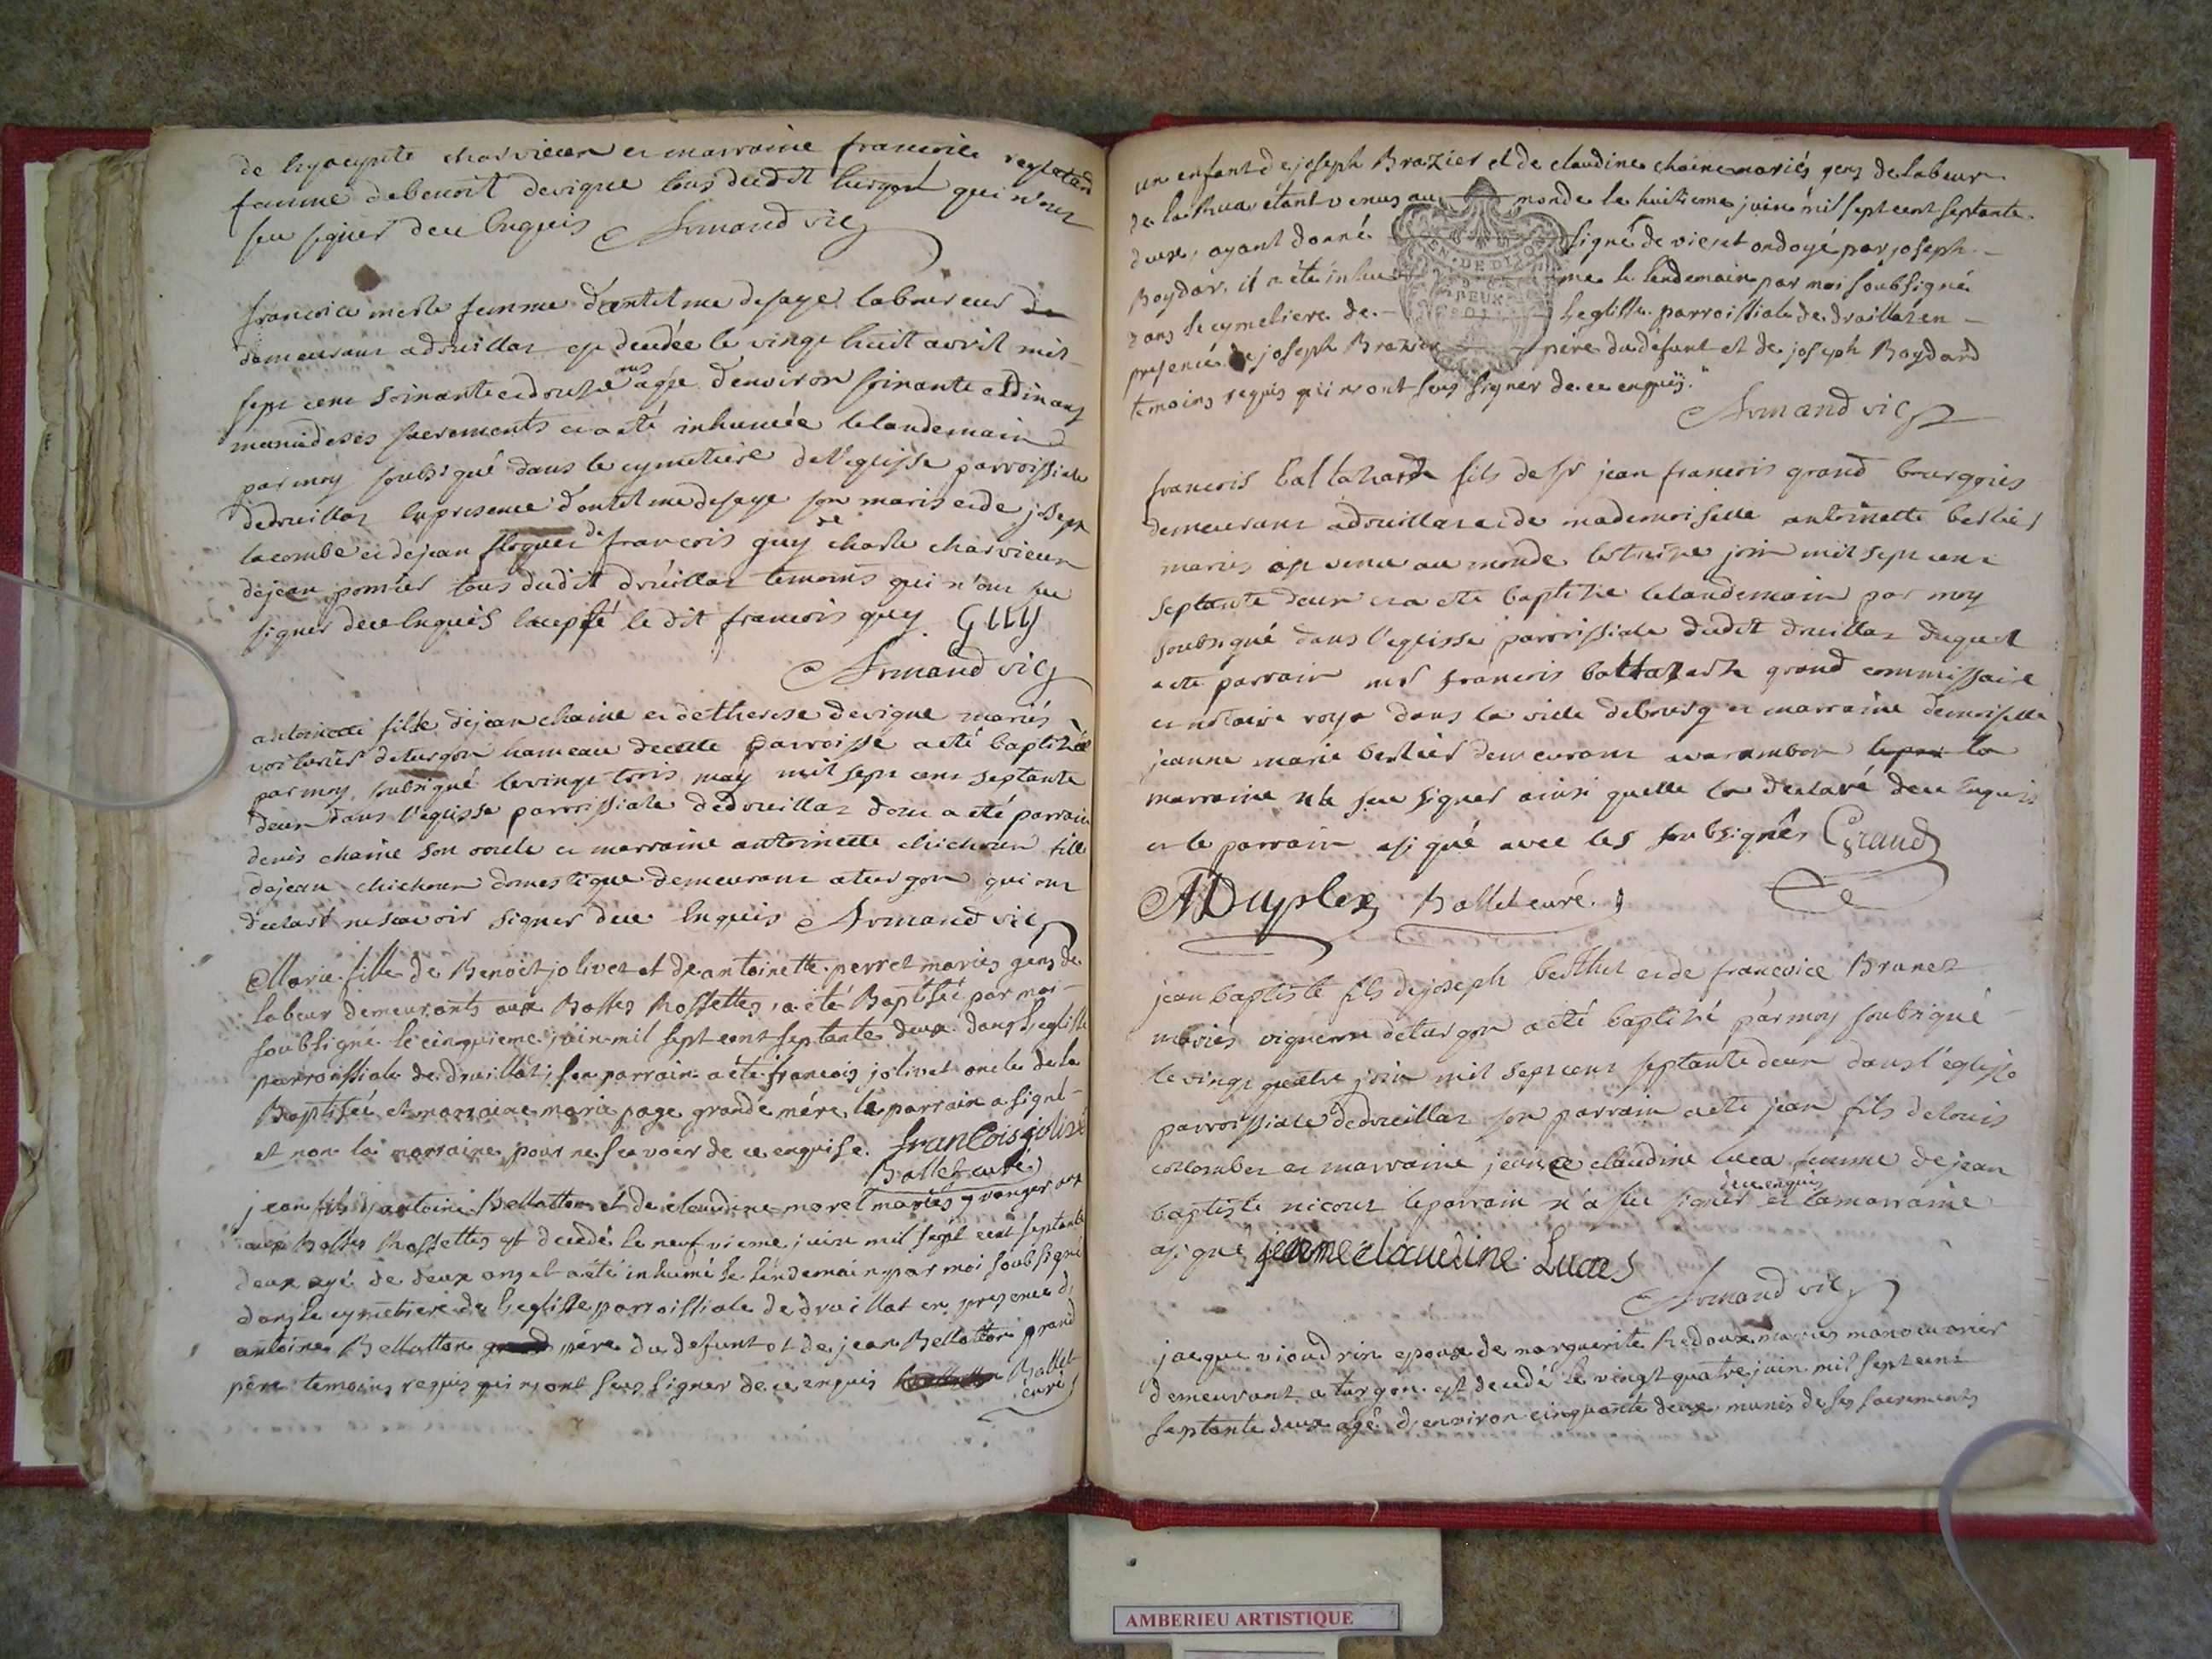 de hyacynte charvieux et marraine francoise
femme de benoit devigne tous dudit turgon qui n'ont
seu signer de ce enquis Armand vic
francoise merle femme d'antelme desaye laboureur de
demeurant a druillat est decedée le vingt huit avril mil
sept cent soixante et douze agée d'environ soixante et dix ans
munie de ses sacrements et a eté inhumée le landemain
par moy soubsigné dans le cymetiere de l'eglisse parroissiale
de druillat en presence d'antelme desaye son maris et de joseph
lacombe et de jean de francois guy de charle charvieux
de jean pomier tous dudit druillat temoins qui n'ont su
signer de ce enquis excepté le dit francois guy GUY
Armand vic
antoinette fille de jean chaine et de therese devigne mariés
de turgon hameau de cette parroisse a eté baptizée
par moy soubsigné le vingt trois may mil sept cent septante
deux dans l'eglisse parroissiale de druillat dont a eté parrain
denis chaine son oncle et marraine antoinette chichoux fille
de jean chichoux domestique demeurant a turgon qui ont
declaré ne scavoir signer de ce enquis Armand vic
Marie fille de Benoit jolivet et de antoinette perret mariés gens de
labeur demeurants aux Basses Rossettes, a eté Baptisée par moi
soubsigné le cinquieme juin mil sept cent septante deux dans l'eglisse
parroissiale de druillat; son parrain a eté francois jolivet oncle de la
Baptisée et marraine marie page grande mére, le parrain a signé
et non la marraine pour ne scavoir de ce enquise. francois jolivé
Ballet curé
jean fils d'antoine Bellatton et de claudine morel mariés granger
aux Basses Rossettes est decedé le neufvieme juin mil sept cent septante
deux agé de deux ans et a eté inhumé le lendemain par moi soubsigné
dans le cymetiere de l'eglisse parroissiale de druillat en presence d'
antoine Bellatton pére du defunt et de jean Bellatton grand
pére temoins requis qui n'ont seus signer de ce enquis Ballet
curé
un enfant de joseph Brazier et de claudine chaine mariés gens de labeur
de la Rua etant venus au monde le huitieme juin mil sept cent septante
deux, ayant donné signé de vie et ondoyé par joseph
Bogdar, il a eté inhumé le lendemain par moi soubsigné
dans le cymetiere de l'eglisse parroissiale de druillat en
presence de joseph Brazier pére du défunt et de joseph Bogdard
temoins requis qui n'ont seus signer de ce enquis.
Armand vic
francois baltazard fils de sr jean francois grand bourgois
demeurant a druillat et de mademoiselle antoinette berlier
mariés est venu au monde le treize join mil sept cent
septante deux et a eté baptizé le landemain par moy
soubsigné dans l'eglisse parroissiale dudit druillat duquel
a eté parrain mr francois baltazard grand commissaire
et notaire roya dans la ville de bourg et marraine demoiselle
jeanne marie berlier demeurant a varambon la
marraine n'a seu signer ainsi quelle la declaré de ce enquis
et le parrain a signé avec les soubsignés Grand
ADuplex Ballet curé
jean baptiste fils de joseph berthet et de francoise Brunet
mariés vigneron de turgon a eté baptizé par moy soubsigné
le vingt quatre join mil sept cent septante deux dans l'eglisse
parroissiale de druillat son parrain a eté jean fils de louis
colomber et marraine jeanne claudine luca femme de jean
baptiste nicoux le parrain n'a seu signer de ce enquis et la marraine
a signé jeanne claudine Lucas
Armand vic
jacque vioudrin epoux de marguerite Redoux mariés manouvrier
demeurant a turgon est decedé le vingt quatre juin mil sept cent
septante deux agé d'environ cinquante deux munis de ses sacrements
AMBERIEU ARTISTIQUE